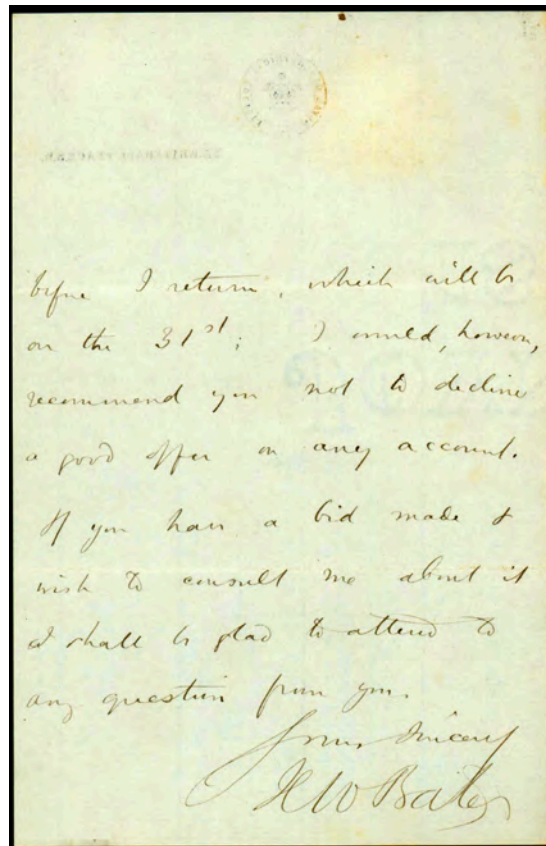 before I return, which will be
on the 31st; I would, however,
recommend you not to decline
a good offer on any account.
If you have a bid made &
wish to consult me about it
I shall be glad to attend to
any question from you.
Yours sincerely
H W Bates